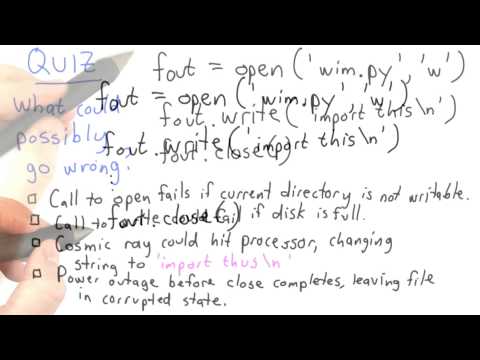 QUIZ
what could
possibly
go wrong?
fout = open ('wim.py', 'w')
fout.write ('import this\n')
fout.close()
fout = open ('wim.py' 'w')
fout.write ('import this\n')
fout.close()
Call to open fails if current directory is not writable.
Call to fail if disk is full.
Cosmic ray could hit processor, changing
string to 'import thus\n'
Power outage before close completes, leaving file
in corrupted state.